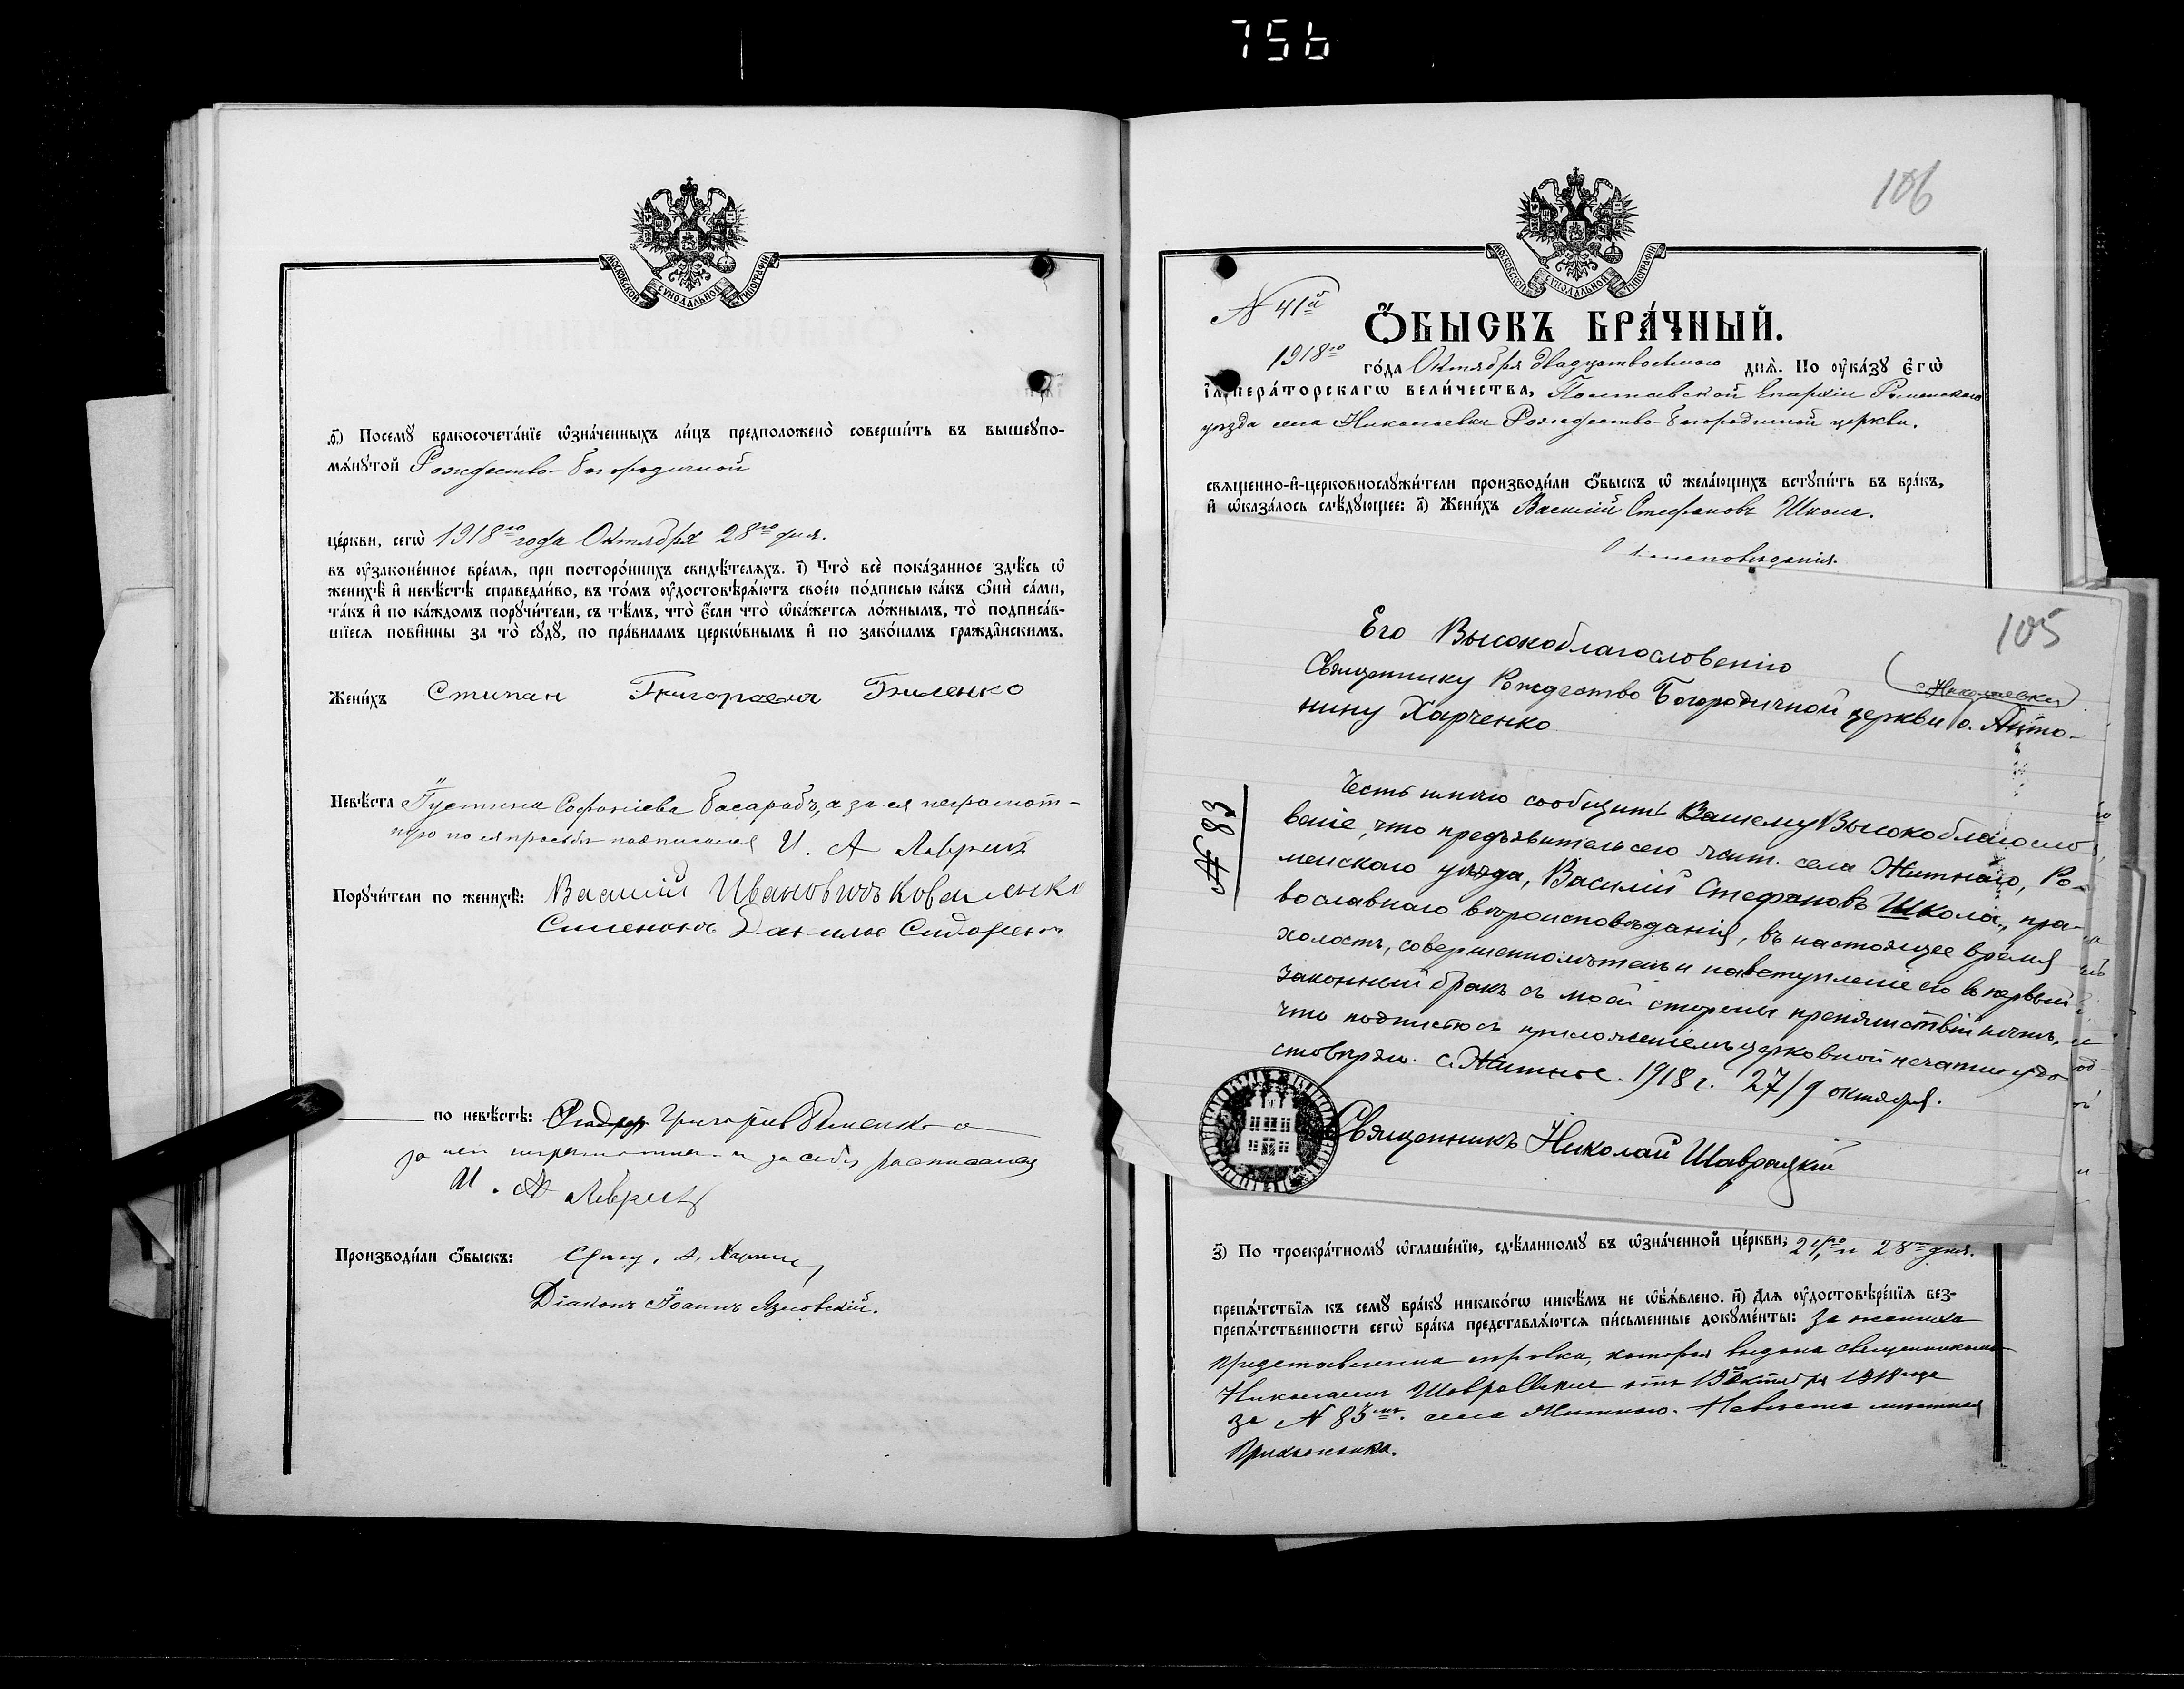 756
МОСКОВСКОЙ СѴНОДАЛЬНОЙ ТИПОГРАФІИ
ѳ҃) Посемꙋ̀ бракосочета́нїе ѡ҆зна́ченныхъ ли́цъ предположено̀ соверши́ть въ вышеꙋпо-
мѧ́нꙋтой Рождество-Богородичной
це́ркви, сегѡ̀ 1918го года Октября 28го дня.
въ ᲂу҆законе́нное вре́мѧ, при посторо́ннихъ свидѣ́телѧхъ. і҃) Что̀ всѐ пока́занное здѣ́сь ѡ҆
женихѣ̀ и҆ невѣ́стѣ справедли́во, въ то́мъ ᲂу҆достовѣрѧ́ютъ свое́ю по́дписью ка́къ ѻ҆нѝ са́ми,
та́къ и҆ по ка́ждомъ порꙋчи́тели, съ тѣ́мъ, что̀ є҆́сли что̀ ѡ҆ка́жетсѧ ло́жнымъ, то̀ подписа́в-
шїесѧ пови́нны за то̀ сꙋдꙋ̀, по пра́виламъ церкѡ́внымъ и҆ по зако́намъ гражда̑нскимъ.
Жени́хъ Стипан Григорьевич Биленко
Невѣ́ста Іустина Софоніева Басарабъ, а за ея неграмот-
ную по ея просьбѣ подписался И. А Лаврик
Порꙋчи́тели по женихѣ̀: Василій Ивановичъ Коваленко
Данилов Сидоренко
по невѣ́стѣ: Григоріев Биленко а
за него неграмотнаго и за себя расписался
И. А Лаврик
Производи́ли ѻ҆́быскъ: Свящ. А. Харчен
Діаконъ Іоаннъ Язловскій.
106
МОСКОВСКОЙ СѴНОДАЛЬНОЙ ТИПОГРАФІИ
N 41й
Ѻ҆́БЫСКЪ БРА́ЧНЫЙ.
1918го го́да Октября двадцатьвосьмого днѧ̀. По ᲂу҆ка́зꙋ Є҆гѡ̀
И҆мпера́торскагѡ вели́чества, Полтавской Епархіи Роменскаго
уѣзда села Николаевки Рождество-Богородичной церкви.
свѧщенно-и҆-церковнослꙋжи́тели производи́ли ѻ҆́быскъ ѡ҆ жела́ющихъ встꙋпи́ть въ бра́къ,
и҆ ѡ҆каза́лось слѣ́дꙋющее: а҃) Жени́хъ Василій Стефановъ Школа.
105
Его Высокоблагословенію
Священнику Рождество Богородичной церкви (с. Николаевки) о. Анто-
нину Харченко
N 83
Честь имѣю сообщить Вашему Высокоблагосло-
венію, что предъявитель сего жит. села Житнаго, Ро-
менскаго уѣзда, Василій Стефановъ Школа, пра-
вославнаго вѣроисповѣданія, въ настоящее время
холостъ, совершеннолѣтенъ и на вступленіе его въ первый
законный бракъ съ моей стороны препятствій нѣтъ,
что подписью съ приложеніемъ церковной печати удо-
стовѣряю. с. Житное. 1918 г. 27/9 октября.
Священникъ Николай Шаврацкій
з҃) По троекра́тномꙋ ѡ҆глаше́нїю, сдѣ́ланномꙋ въ ѡ҆зна́ченной це́ркви, 21го и 28го дня.
препѧ́тствїѧ къ семꙋ̀ бра́кꙋ никако́гѡ никѣ́мъ не ѡ҆б̾ѧ́влено. и҃) Длѧ ᲂу҆достовѣре́нїѧ без-
препѧ́тственности сегѡ̀ бра́ка представлѧ́ютсѧ пи́сьменные докꙋме́нты: За жениха
представленна справка, которая выдана священникомъ
Николаемъ отъ Октября 1918 года
за N 83мъ. села Житного. Невѣста мѣстная
прихожанка.